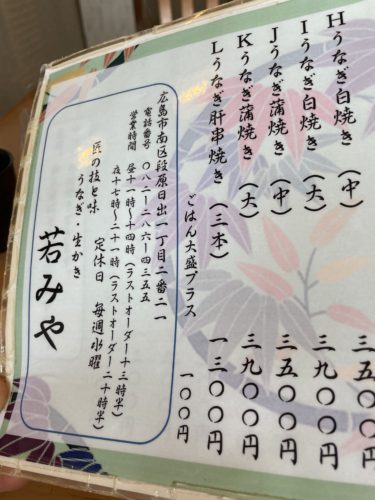 Hうなぎ白焼き(中) 三五〇〇円
Iうなぎ白焼き(大) 三九〇〇円
Jうなぎ蒲焼き(中) 三五〇〇円
Kうなぎ蒲焼き(大) 三九〇〇円
Lうなぎ肝串焼き(三本) 一三〇〇円
ごはん大盛プラス 一〇〇円
広島市南区段原日出一丁目二番二一
電話番号 〇八二-二八六-四三五五
営業時間 昼十一時~十四時(ラストオーダー十三時半)
夜十七時~二十一時(ラストオーダー二十時半)
定休日 毎週水曜
匠の技と味
うなぎ・生かき
若みや